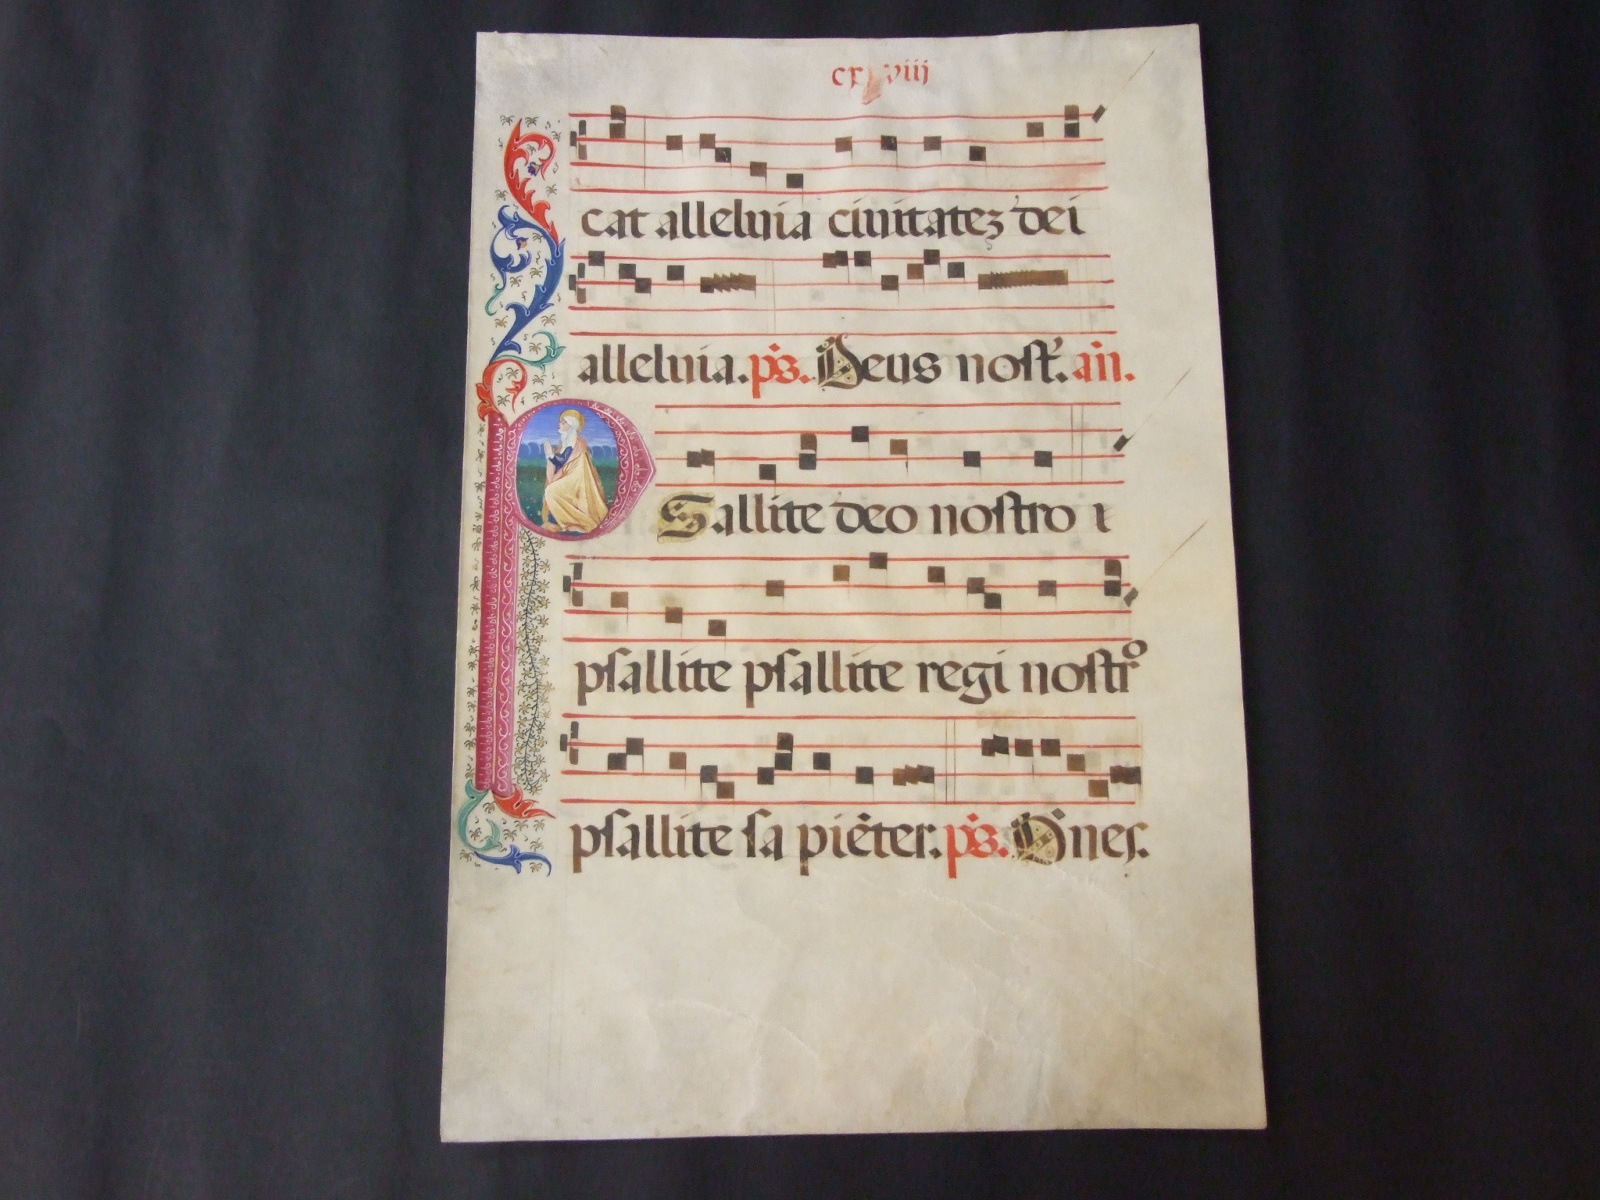 cxlviij
cat alleluia ciuitateʒ dei
alleluia. ps. Deus noſt̉. añ.
Sallite deo noſtro ı
pſallite pſallite regi noſtrᵒ
pſallite ſa piēter. ps. Om̄eſ.